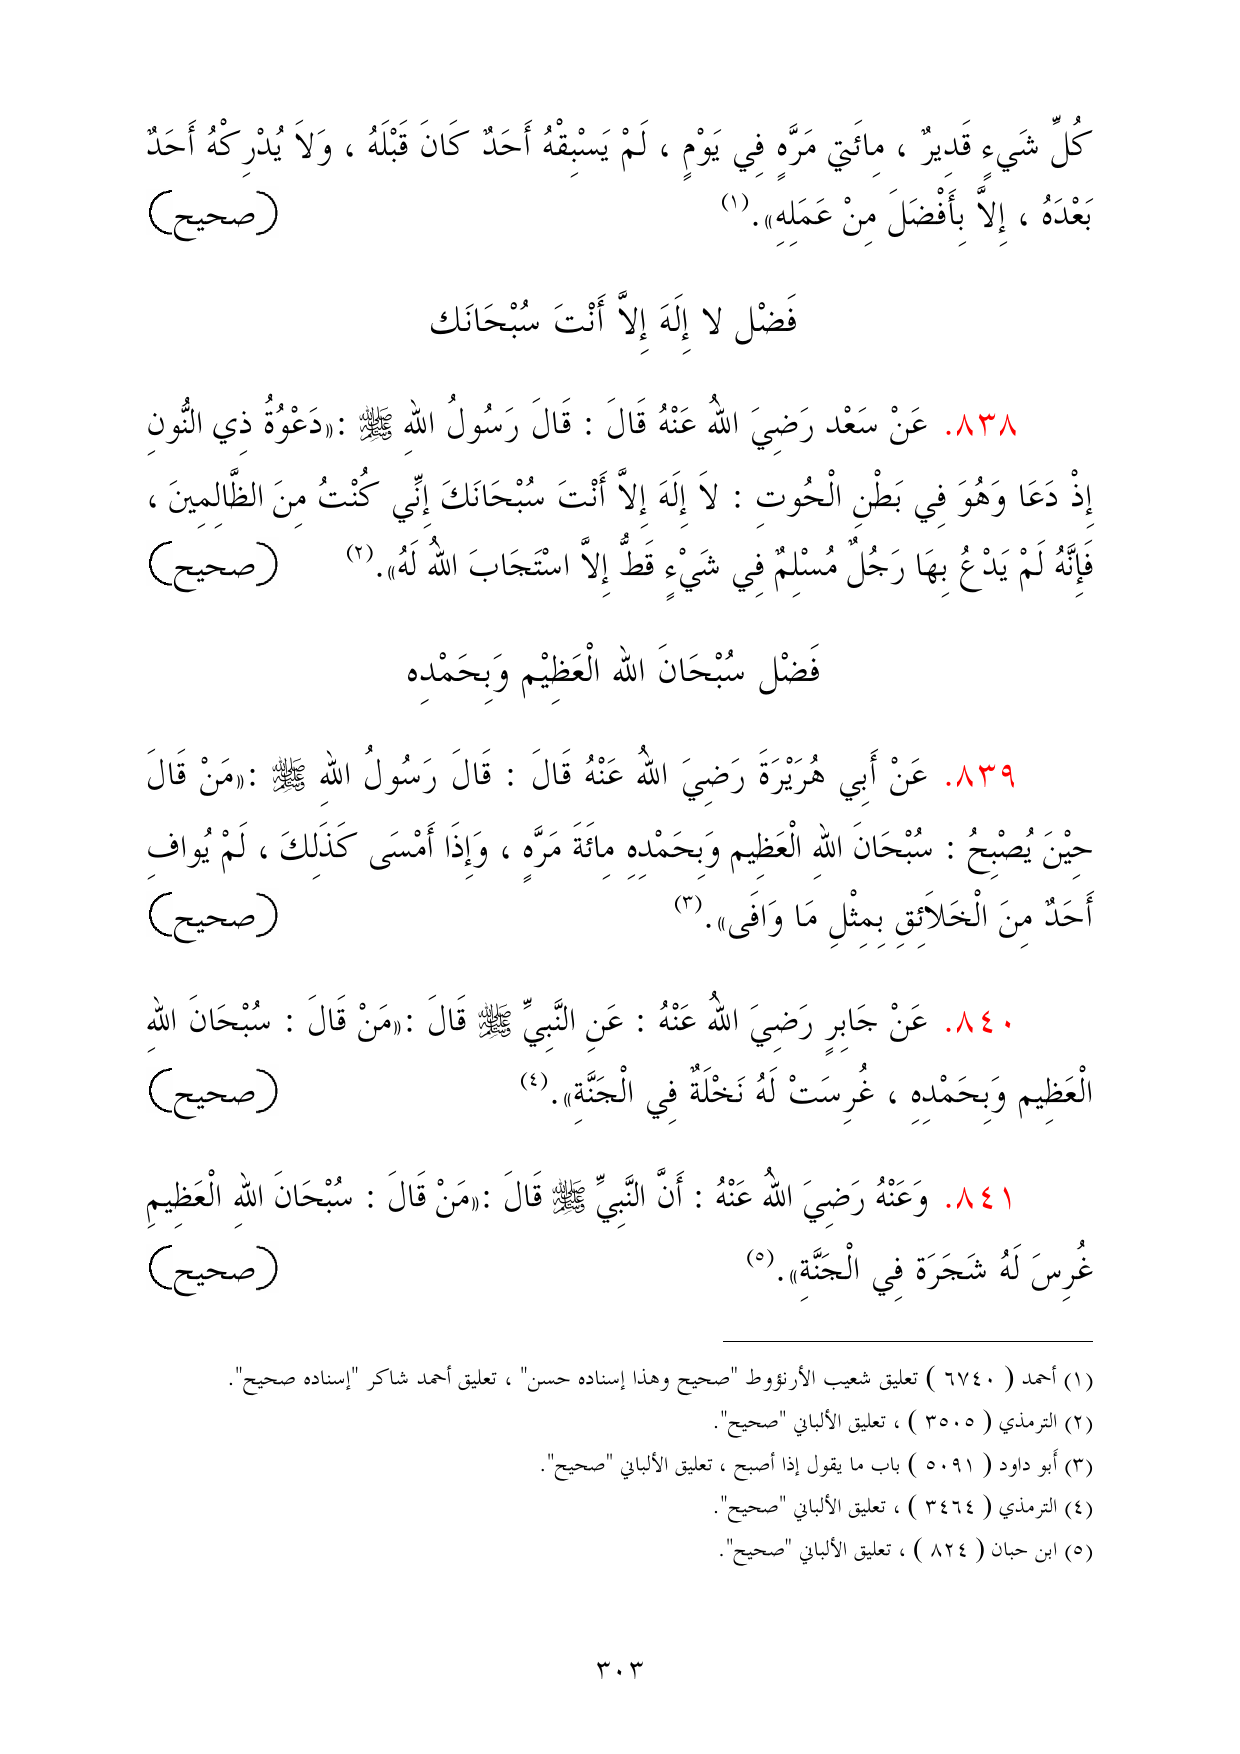 كُلِّ شَيءٍ قَدِيرٌ ، مِائَتي مَرَّهٍ فِي يَوْمٍ ، لَمْ يَسْبِقْهُ أَحَدٌ كَانَ قَبْلَهُ ، وَلاَ يُدْرِكْهُ أَحَدٌ
بَعْدَهُ ، إِلاَّ بِأَفْضَلَ مِنْ عَمَلِهِ». (١) (صحيح)
فَضْل لا إِلَهَ إِلاَّ أَنْتَ سُبْحَانَك
٨٣٨. عَنْ سَعْد رَضِيَ اللهُ عَنْهُ قَالَ : قَالَ رَسُولُ اللهِ ﷺ :«دَعْوُةُ ذِي النُّونِ
إِذْ دَعَا وَهُوَ فِي بَطْنِ الْحُوتِ : لاَ إِلَهَ إِلاَّ أَنْتَ سُبْحَانَكَ إِنِّي كُنْتُ مِنَ الظَّالِمِينَ ،
فَإِنَّهُ لَمْ يَدْعُ بِهَا رَجُلٌ مُسْلِمٌ فِي شَيْءٍ قَطُّ إِلاَّ اسْتَجَابَ اللهُ لَهُ». (٢) (صحيح)
فَضْل سُبْحَانَ الله الْعَظِيْم وَبِحَمْدِه
٨٣٩. عَنْ أَبِي هُرَيْرَةَ رَضِيَ اللهُ عَنْهُ قَالَ : قَالَ رَسُولُ اللهِ ﷺ :«مَنْ قَالَ
حِيْنَ يُصْبِحُ : سُبْحَانَ اللهِ الْعَظِيم وَبِحَمْدِهِ مِائَةَ مَرَّهٍ ، وَإِذَا أَمْسَى كَذَلِكَ ، لَمْ يُوافِ
أَحَدٌ مِنَ الْخَلاَئِقِ بِمِثْلِ مَا وَافَى». (٣) (صحيح)
٨٤٠. عَنْ جَابِرٍ رَضِيَ اللهُ عَنْهُ : عَنِ النَّبِيِّ ﷺ قَالَ :«مَنْ قَالَ : سُبْحَانَ اللهِ
الْعَظِيم وَبِحَمْدِهِ ، غُرِسَتْ لَهُ نَخْلَةٌ فِي الْجَنَّةِ». (٤) (صحيح)
٨٤١. وَعَنْهُ رَضِيَ اللهُ عَنْهُ : أَنَّ النَّبِيِّ ﷺ قَالَ :«مَنْ قَالَ : سُبْحَانَ اللهِ الْعَظِيمِ
غُرِسَ لَهُ شَجَرَة فِي الْجَنَّةِ». (٥) (صحيح)
(١) أحمد ( ٦٧٤٠ ) تعليق شعيب الأرنؤوط "صحيح وهذا إسناده حسن" ، تعليق أحمد شاكر "إسناده صحيح".
(٢) الترمذي ( ٣٥٠٥ ) ، تعليق الألباني "صحيح".
(٣) أَبو داود ( ٥٠٩١ ) باب ما يقول إذا أصبح ، تعليق الألباني "صحيح".
(٤) الترمذي ( ٣٤٦٤ ) ، تعليق الألباني "صحيح".
(٥) ابن حبان ( ٨٢٤ ) ، تعليق الألباني "صحيح".
٣٠٣